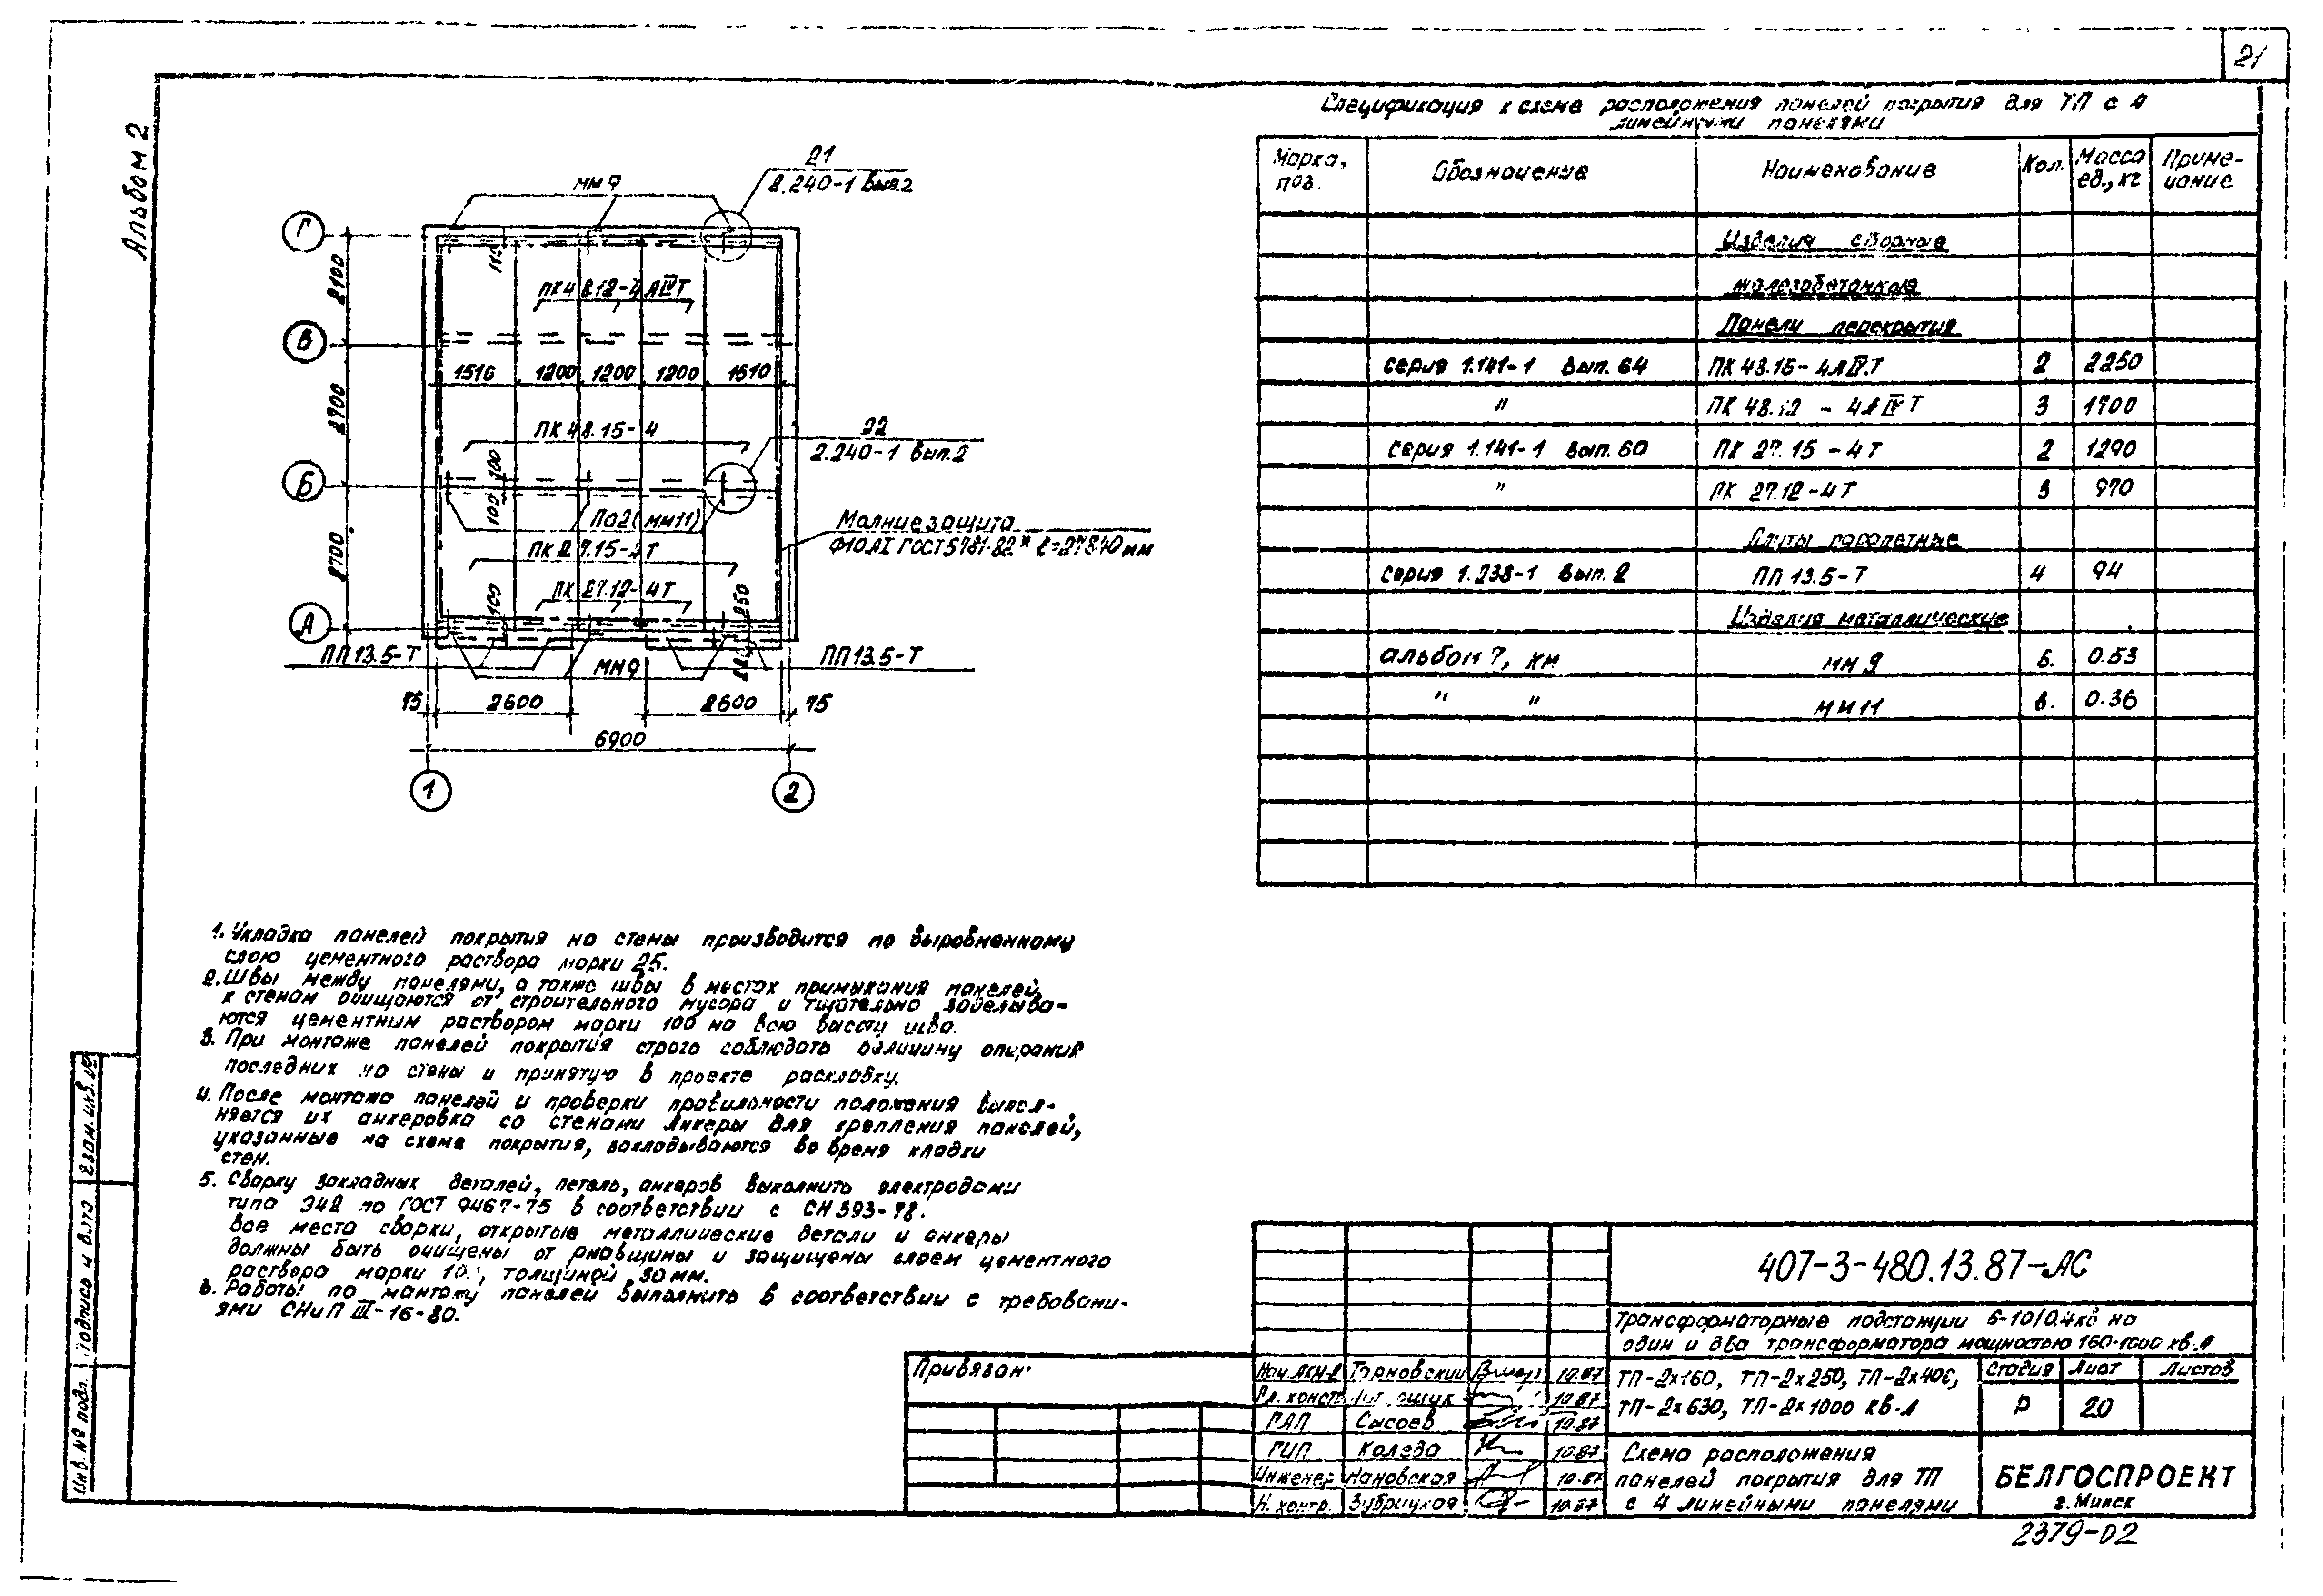 21
Альбом 2
Спецификация к схеме расположения панелей покрытия для ТП с 4
линейными панелями
Марка, поз. Обозначение Наименование Кол. Масса ед., кг Приме-чание
Изделия сборные
железобетонные
Панели перекрытия
серия 1.141-1 вып. 64 ПК 48.15-4АIV.Т 2 2250
" ПК 48.12 - 4АIVТ 3 1700
серия 1.141-1 вып. 60 ПК 27.15 - 4Т 2 1290
" ПК 27.12-4Т 3 970
Плиты парапетные
серия 1.238-1 вып. 2 ПП 13.5-Т 4 94
Изделия металлические
альбом 7, КМ ММ 9 6. 0.53
" " ММ11 6. 0.36
21
2.240-1 вып.2
ММ 9
Г
2100
115
ПК48.12-4АIVТ
В
1510 1200 1200 1200 1510
2700
ПК 48.15-4
22
2.240-1 вып.2
100
Б
100
ПО2(ММ11)
Молниезащита
Ф10АI ГОСТ5781-82* ℓ=27840мм
ПК 27.15-4Т
2700
ПК 27.12-4Т
100
250
А
ПП13.5-Т
ММ9
ПП 13.5-Т
75 2600 2600 75
6900
1 2
1. Укладка панелей покрытия на стены производится по выровненному
слою цементного раствора марки 25.
2. Швы между панелями, а также швы в местах примыкания панелей
к стенам очищаются от строительного мусора и тщательно заделыва-
ются цементным раствором марки 100 на всю высоту шва.
3. При монтаже панелей покрытия строго соблюдать величину опирания
последних на стены и принятую в проекте раскладку.
4. После монтажа панелей и проверки правильности положения выпол-
няется их анкеровка со стенами Анкеры для крепления панелей,
указанные на схеме покрытия, закладываются во время кладки
стен.
5. Сварку закладных деталей, петель, анкеров выполнить электродами
типа Э42 по ГОСТ 9467-75 в соответствии с СН 393-78.
Все места сварки, открытые металлические детали и анкеры
должны быть очищены от ржавщины и защищены слоем цементного
раствора марки толщиной 30 мм.
6. Работы по монтажу панелей выполнить в соответствии с требовани-
ями СНиП III-16-80.
Взам. инв. №
Подпись и дата
Инв. № подл.
Привязан:
407-3-480.13.87-АС
Трансформаторные подстанции 6-10/0.4кв на
один и два трансформатора мощностью 160-1000 кв.А
Нач.АКМ-2 Тарновский 10.87
Гл. констр. 10.87
ГАП Сысоев 10.87
ГИП Коледа 10.87
Инженер 10.87
Н. контр. Зубрицкая 10.87
ТП-2х160, ТП-2х250, ТП-2х400,
ТП-2х630, ТП-2х1000 кв.А
Стадия Лист Листов
Р 20
Схема расположения
панелей покрытия для ТП
с 4 линейными панелями
БЕЛГОСПРОЕКТ
г. Минск
2379-02